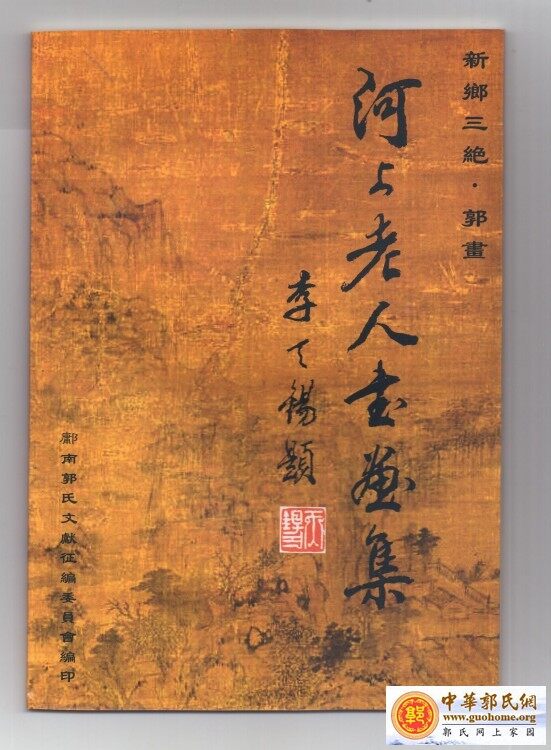 新鄉三絕·郭畫
河上老人书画集
李天锡題
鄘南郭氏文獻征編委員會編印
中華郭氏網
www.guohome.org
郭氏网上家园